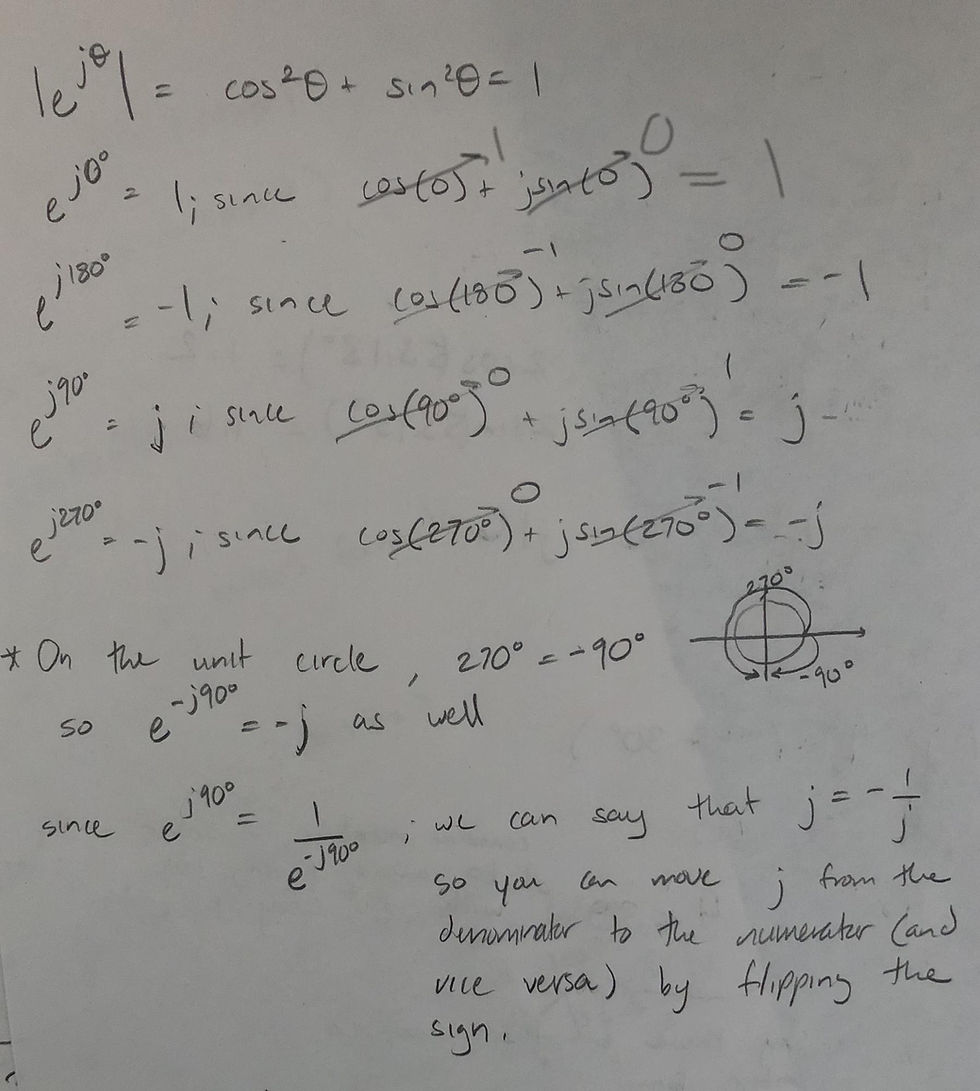 |e^{jθ}| = cos²θ + sin²θ = 1
e^{j0°} = 1; since cos(0)→1 + jsin(0)→0 = 1
e^{j180°} = -1; since cos(180)→-1 + jsin(180)→0 = -1
e^{j90°} = j; since cos(90°)→0 + jsin(90°)→1 = j
e^{j270°} = -j; since cos(270°)→0 + jsin(270°)→-1 = -j
270°
* On the unit circle, 270° = -90°
-90°
so e^{-j90°} = -j as well
since e^{j90°} = 1/e^{-j90°}; we can say that j = -1/j
so you can move j from the
denominator to the numerator (and
vice versa) by flipping the
sign.